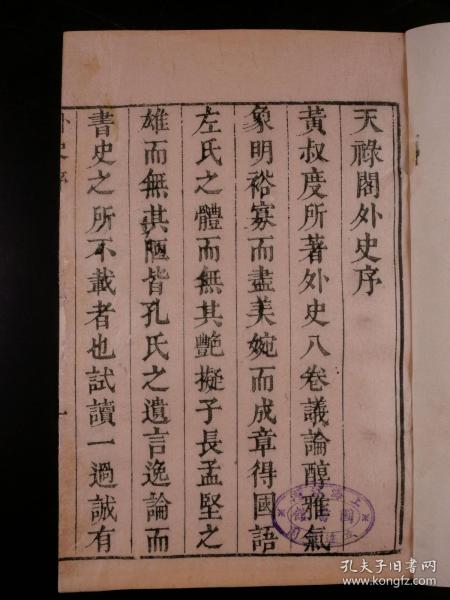 天祿閣外史序
黃叔度所著外史八卷議論醇雅氣
象明裕寡而盡美婉而成章得國語
左氏之體而無其艷擬子長孟堅之
雄而無其陋皆孔氏之遺言逸論而
書史之所不載者也試讀一過誠有
外史序
一
孔夫子旧书网
www.kongfz.com